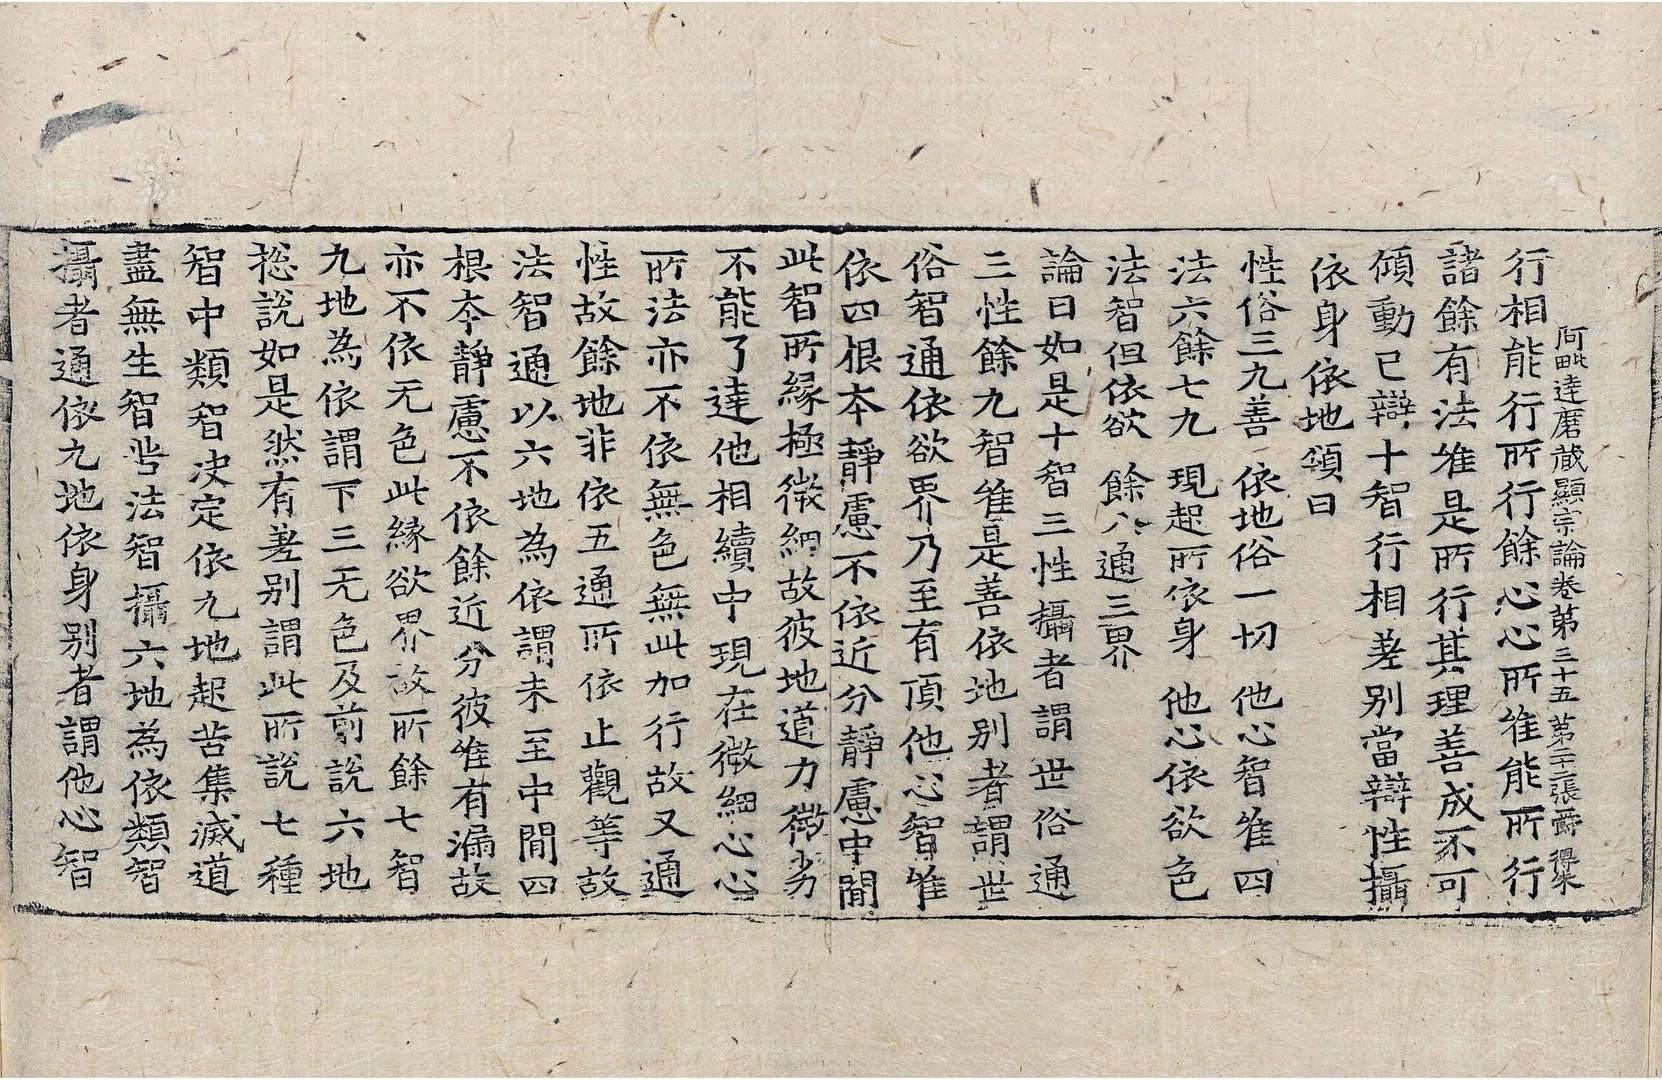 阿毗達磨蔵顯宗論卷第三十五 第二十二張 爵 得林
行相能行所行餘心心所唯能所行
諸餘有法唯是所行其理善成不可
傾動已辯十智行相差别當辯性攝
依身依地頌曰
性俗三九善 依地俗一切 他心智唯四
法六餘七九 現起所依身 他心依欲色
法智但依欲 餘八通三界
論曰如是十智三性攝者謂世俗通
三性餘九智唯是善依地别者謂世
俗智通依欲界乃至有頂他心智唯
依四根本靜慮不依近分靜慮中閒
此智所緣極微細故彼地道力微劣
不能了達他相續中現在微細心心
所法亦不依無色無此加行故又通
性故餘地非依五通所依止觀等故
法智通以六地為依謂未至中閒四
根本靜慮不依餘近分彼唯有漏故
亦不依无色此緣欲界故所餘七智
九地為依謂下三无色及前說六地
捴說如是然有差别謂此所說七種
智中類智决定依九地起苦集滅道
盡無生智若法智攝六地為依類智
攝者通依九地依身别者謂他心智